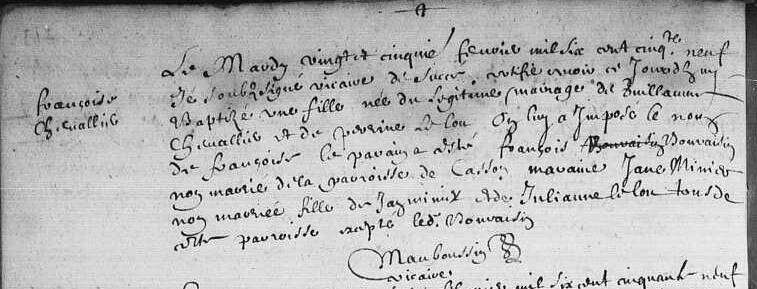 Le Mardy vingt et cinquie febvrier mil six cent cinq.te neuf
Je soubsigné vicaire de Sucé certifie avoir ce Jourdhuy
françoise
Baptizé une fille née du legitime mairage de Guillaume
Chevallier
Chevallier et de perrine Le lou On luy a Imposé le nom
de françoise le parain a esté françois Bouvaisin
non marrié de la parroisse de Casson maraine Jane Minier
non mariéé fille de Jan minier et de Julianne le lou tous de
cette parroisse exepté led. Bouvaisin
Mauboussin
vicaire
mil six cent cinquante neuf